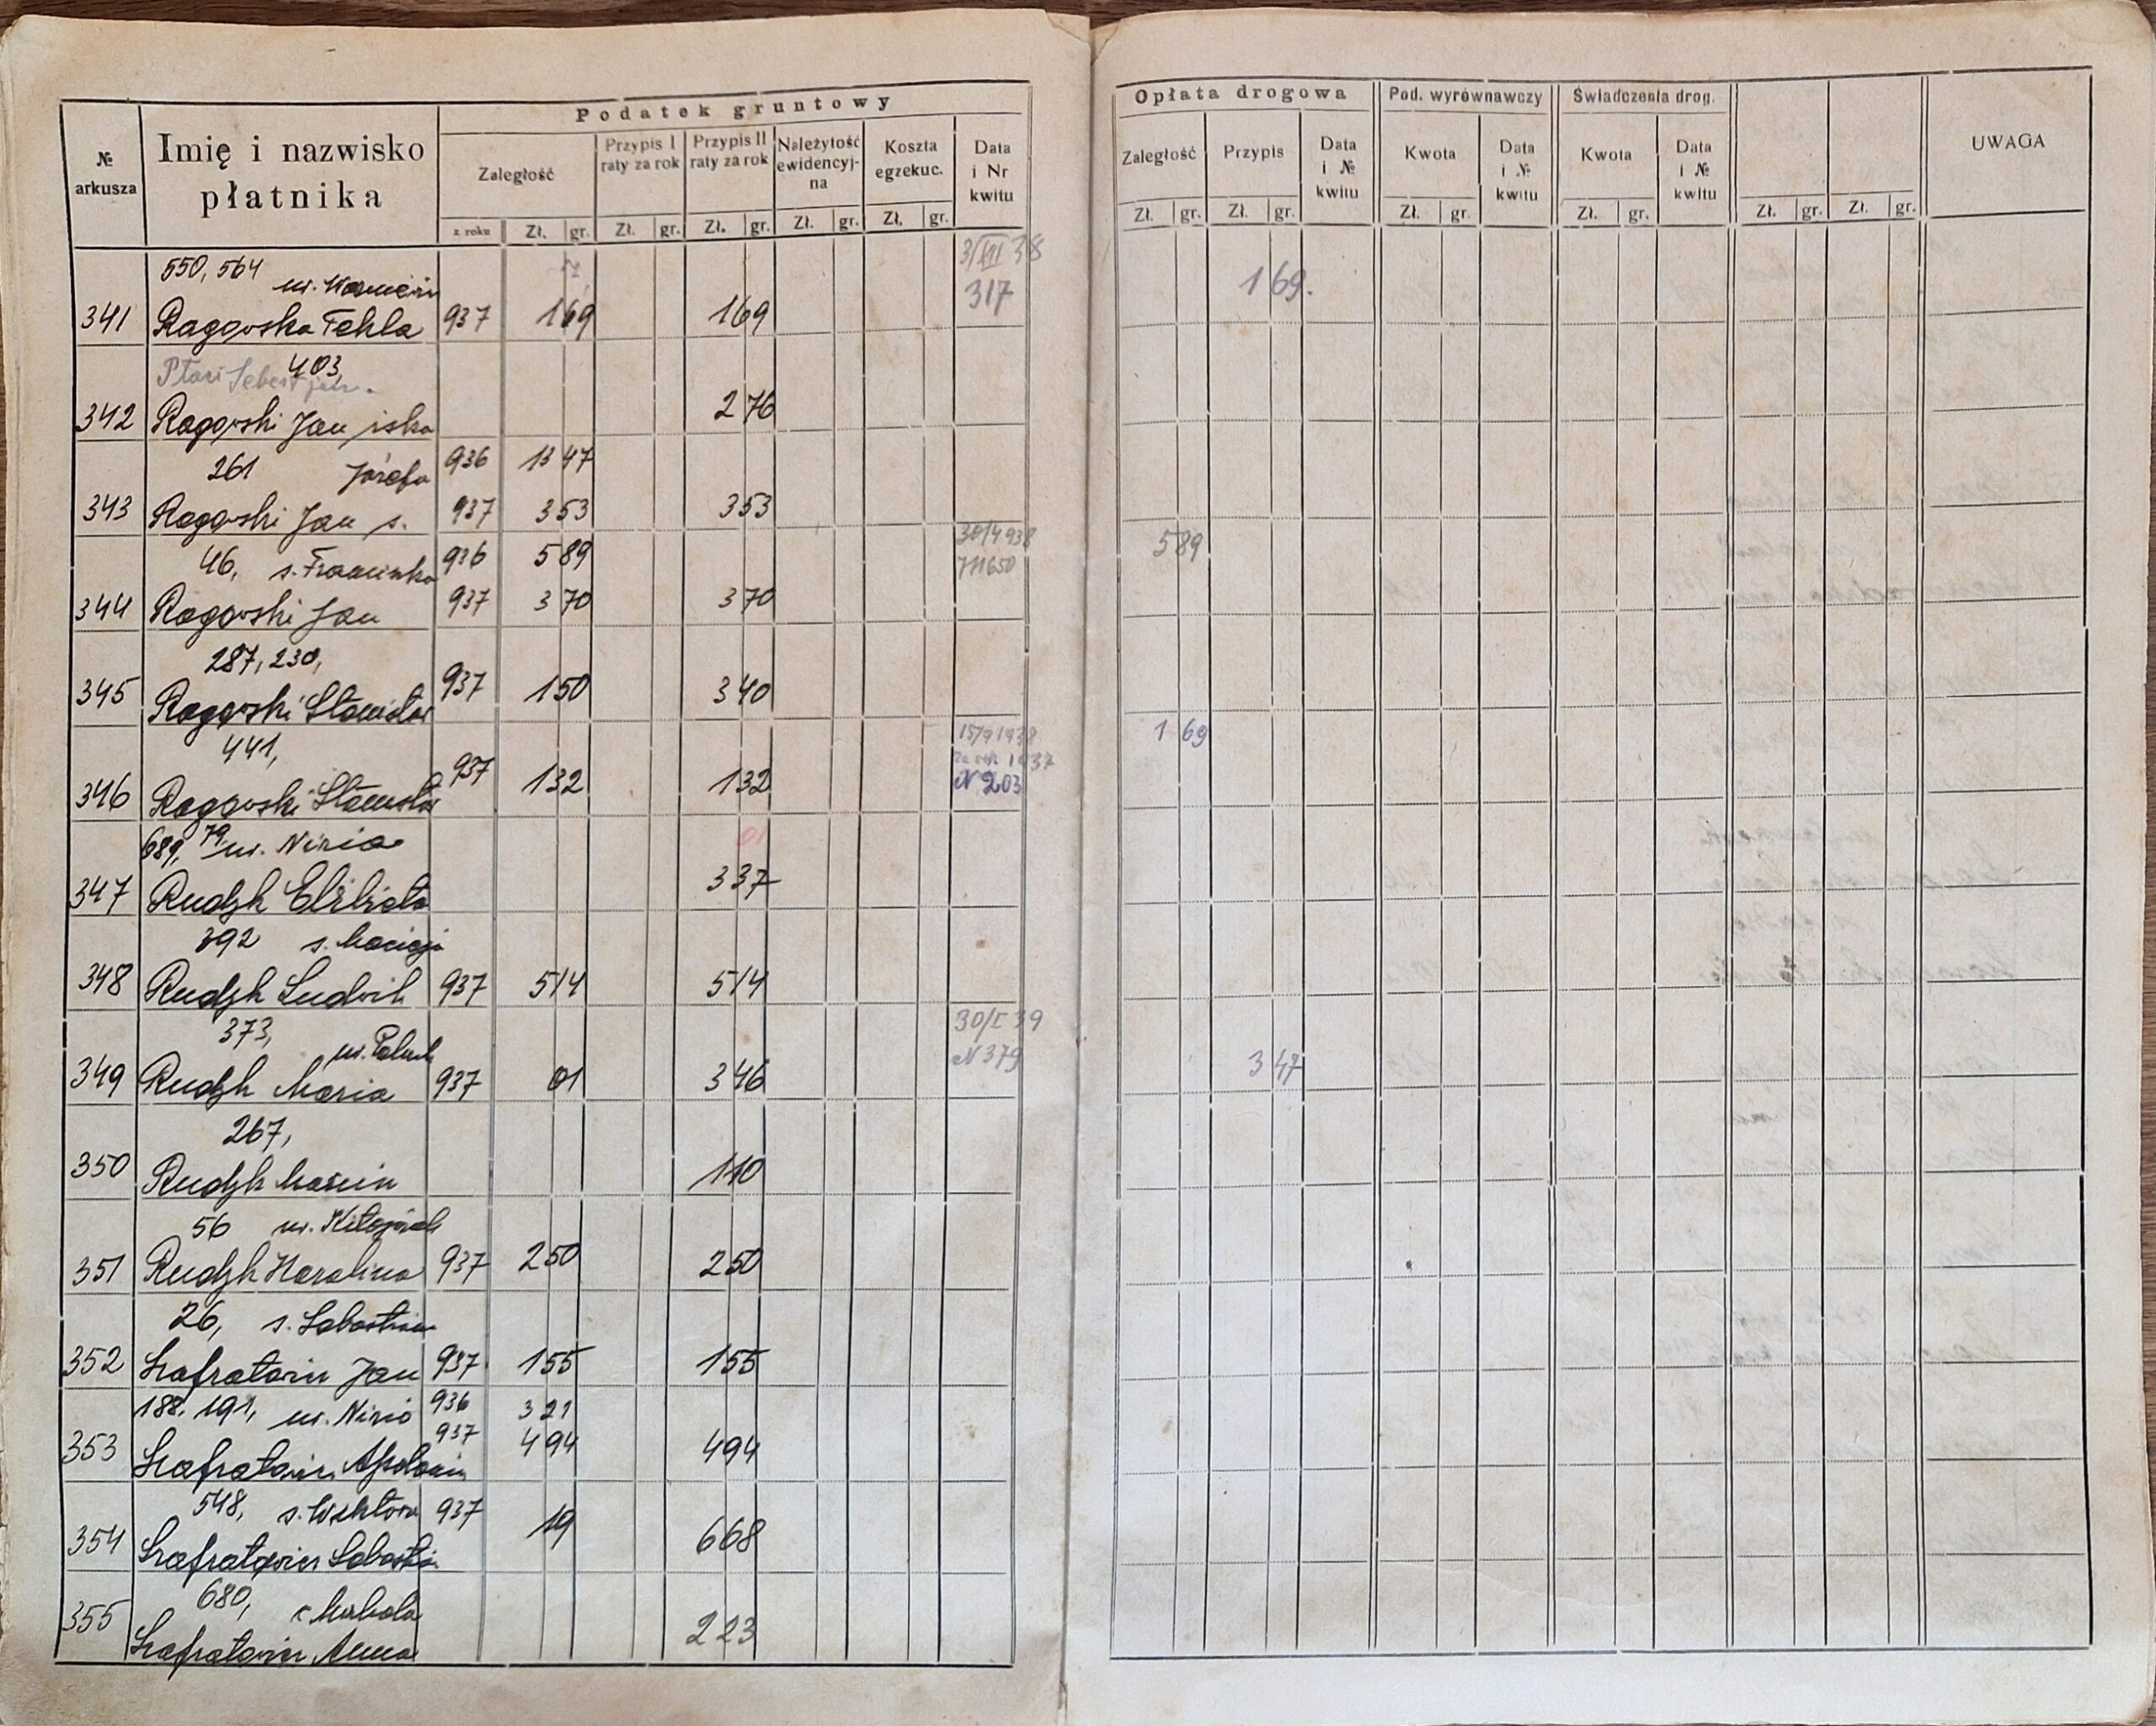 Podatek gruntowy
№ arkusza
Imię i nazwisko płatnika
Zaległość
Przypis I raty za rok
Przypis II raty za rok
Należytość ewidencyjna
Koszta egzekuc.
Data i Nr kwitu
z roku Zł. gr. Zł. gr. Zł. gr. Zł. gr. Zł. gr.
Opłata drogowa Pod. wyrównawczy Świadczenia drog.
Zaległość Przypis Data i № kwitu Kwota Data i № kwitu Kwota Data i № kwitu UWAGA
Zł. gr. Zł. gr. Zł. gr. Zł. gr. Zł. gr. Zł. gr.
550, 564 3/VII 38
341 Rogowska Tekla 937 1 69 1 69 317 1 69.
403,
342 Rogowski Jan 2 76
261 Józefa 936 13 47
343 Rogowski Jan s. 937 3 53 3 53
46, s. Franciszka 936 5 89 30/4 938 5 89
344 Rogowski Jan 937 3 70 3 70
287, 230,
345 Rogowski Stanisław 937 1 50 3 40
441, 15/9 1938 1 69
za rok 1937
346 Rogowski Stanisław 937 1 32 1 32 N 203
689, 79 w. Nizio 01
347 Rudzk Elżbieta 3 37
392 s. Macieja
348 Rudzk Ludwik 937 5 14 5 14
373, 30/I 39
349 Rudzk Maria 937 01 3 46 N 379 3 47
267,
350 Rudzk Marcin 1 10
56
351 Rudzk Karolina 937 2 50 2 50
26, s. Sebastiana
352 Szafratowicz Jan 937 1 55 1 55
188, 191, w. Nizio 936 3 21
353 937 4 94 4 94
548, s. Wiktora 937
354 19 6 68
680,
355 Anna 2 23